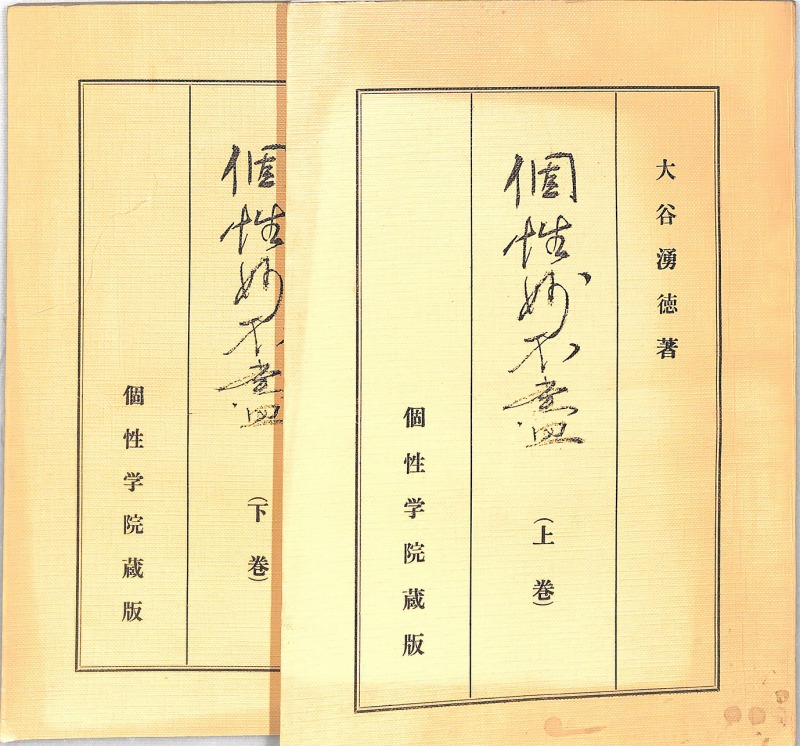 大谷湧徳著
個性妙不盡
(上巻)
個性学院蔵版
個性妙不盡
(下巻)
個性学院蔵版